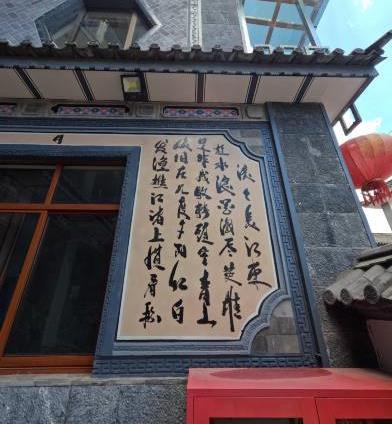 滚々长江东
逝水浪花淘尽英雄
是非成败转头空青山
依旧在几度夕阳红白
发渔樵江渚上惯看秋
月